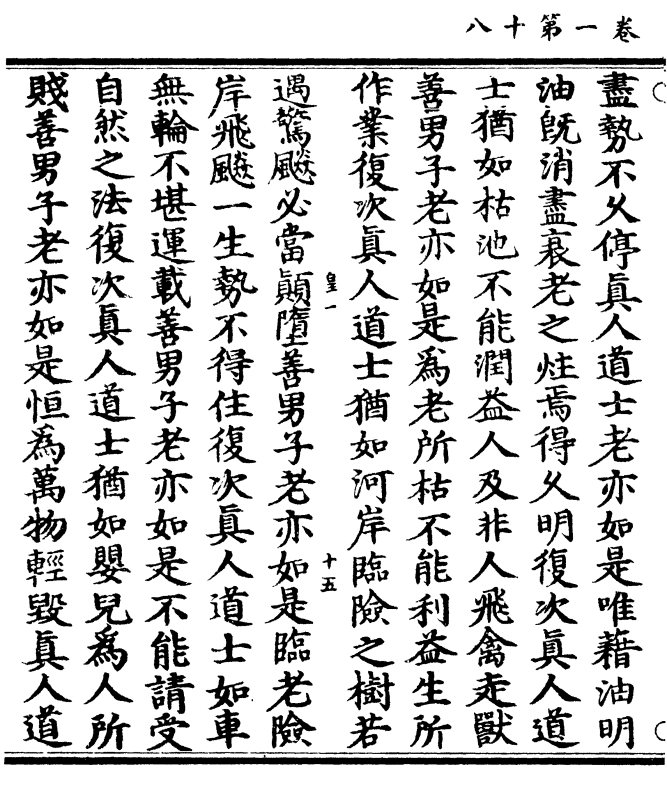 卷一第十八
盡勢不久停眞人道士老亦如是唯藉油明
油旣消盡衰老之炷焉得久明復次眞人道
士猶如枯池不能潤益人及非人飛禽走獸
善男子老亦如是爲老所枯不能利益生所
作業復次眞人道士猶如河岸臨險之樹若
皇一
十五
遇驚飈必當顚墮善男子老亦如是臨老險
岸飛飈一生勢不得住復次眞人道士如車
無輪不堪運載善男子老亦如是不能請受
自然之法復次眞人道士猶如嬰兒爲人所
賤善男子老亦如是恒爲萬物輕毀眞人道